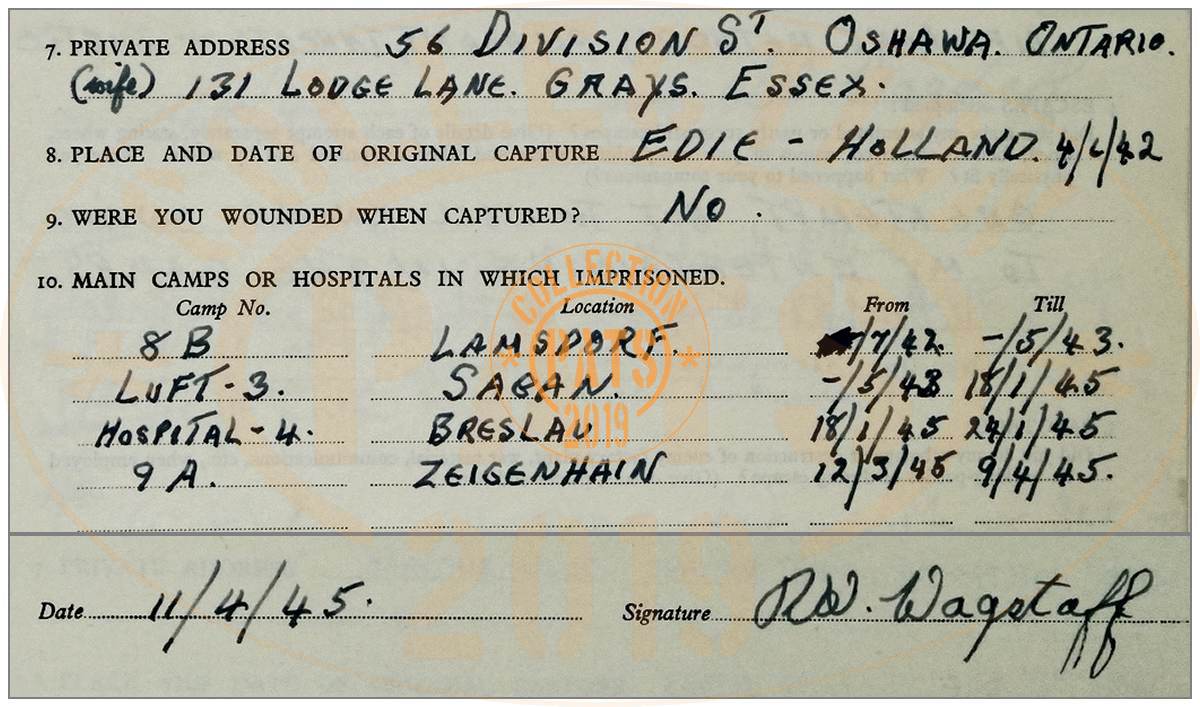 7. PRIVATE ADDRESS 56 DIVISION ST. OSHAWA. ONTARIO.
(wife) 131 LODGE LANE. GRAYS. ESSEX.
8. PLACE AND DATE OF ORIGINAL CAPTURE EDIE - HOLLAND.
9. WERE YOU WOUNDED WHEN CAPTURED? NO.
10. MAIN CAMPS OR HOSPITALS IN WHICH IMPRISONED.
Camp No. Location From Till
8 B LAMSDORF. 7/7/42. -/5/43.
LUFT-3. SAGAN. -/5/43 18/1/45
HOSPITAL-4. BRESLAU 18/1/45 24/1/45
9 A. ZEIGENHAIN 12/3/45 9/4/45.
COLLECTION PATS 2019
Date 11/4/45. Signature RW. Wagstaff